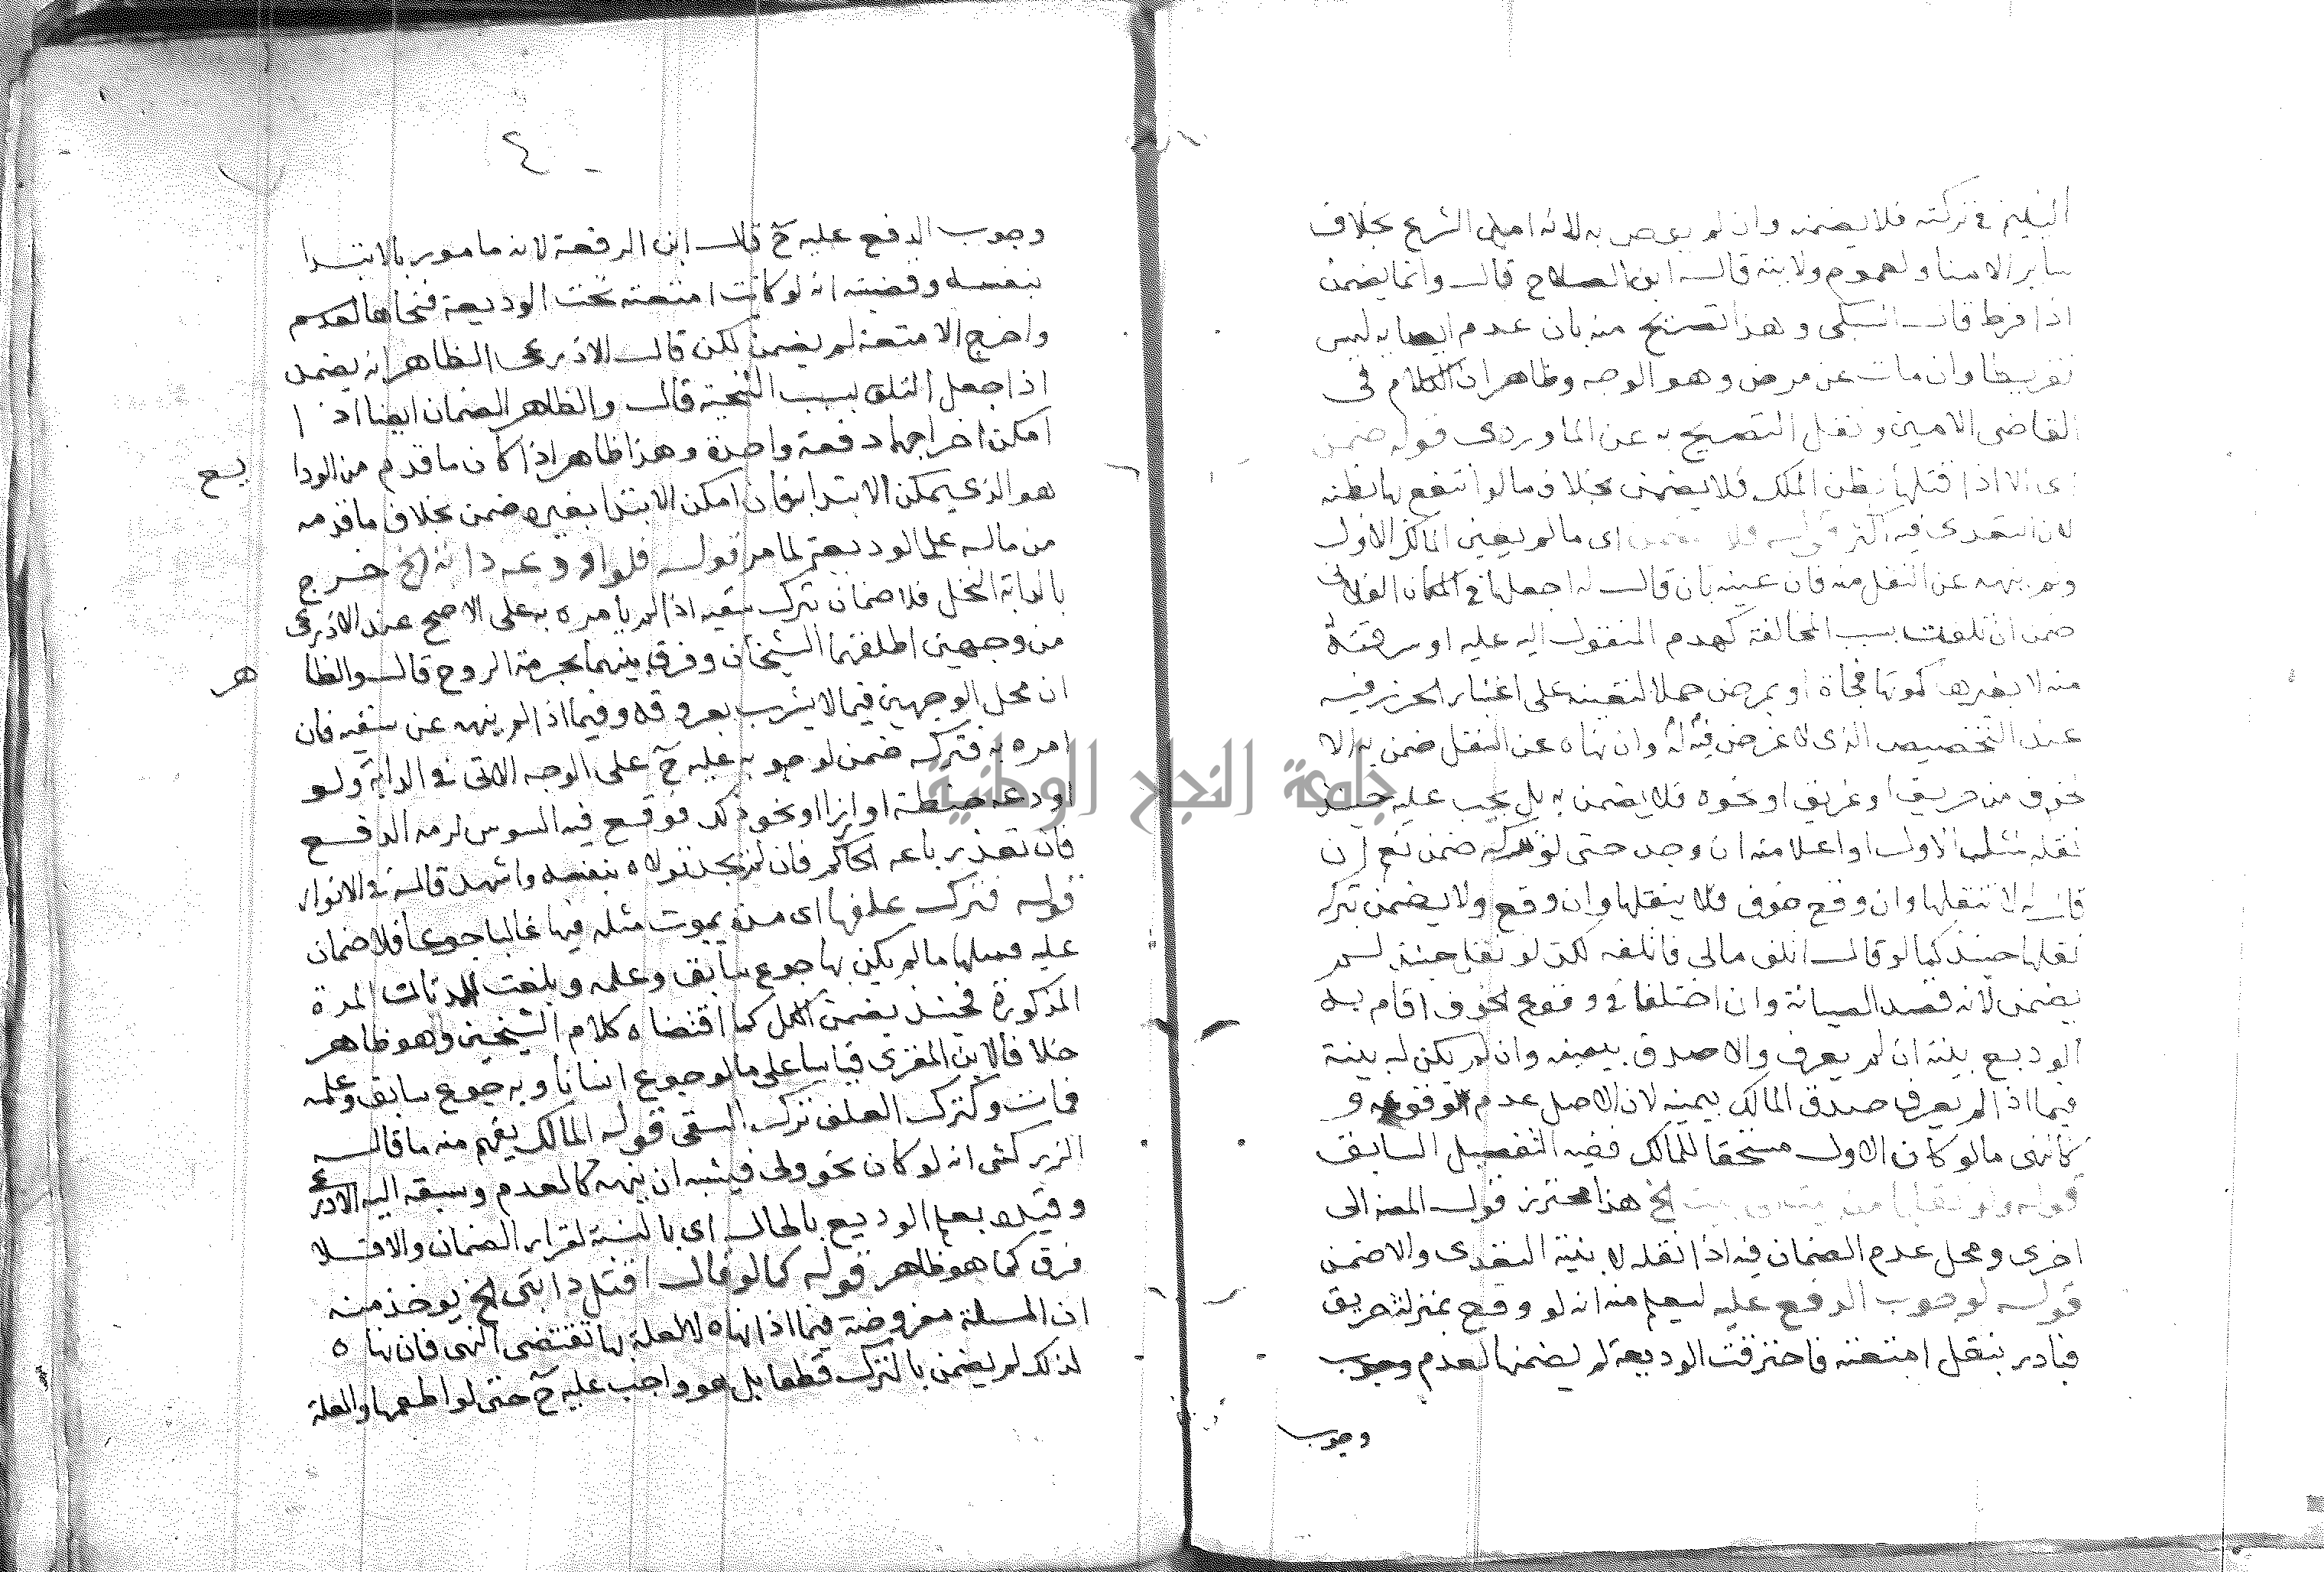 اليتيم في تركته فلا يضمنه وان لم يوص به لانه امين الشرع بخلاف
ساير الامنا ولعموم ولايته قاله ابن الصلاح قال وانما يضمن
اذا فرط قال السبكي وهذا تصريح منه بان عدم ايصايه ليس
تفريطا وان مات عن مرض وهو الوجه وظاهر ان الكلام في
القاضي الامين ونقل التصريح به عن الماوردي قوله ضمن
اي الا اذا نقلها بظن الملك فلا يضمن بخلاف ما لو انتفع بها بظنه
لان التعدي فيه اكثر قوله فلا يضمن اي ما لم يعين المالك الاول
ولم ينهه عن النقل منه فان عينه بان قال له اجعلها في المكان الفلاني
ضمن ان تلفت بسبب المخالفة كهدم المنقول اليه عليه او سرقة
منه لا بغيرها كموتها فجاة او بمرض حملا لتعيينه على اعتبار الحرز فيه
عند التخصيص الذي لا غرض فيه له وان نهاه عن النقل ضمن به الا
لخوف من حريق او غريق او نحوه فلا يضمن به بل يجب عليه حينئذ
نقله لمثل الاول او اعلا منه ان وجد حتى لو تركه ضمن نعم ان
قال له لا تنقلها وان وقع خوف فلا ينقلها وان وقع ولا يضمن بتركه
نقلها حينئذ كما لو قال اتلف مالي فاتلفه لكن لو نقل حينئذ لم
يضمن لانه قصد الصيانة وان اختلفا في وقوع الخوف اقام به
الوديع بينة ان لم يعرف والا صدق بيمينه وان لم يكن له بينة
فيما اذا لم يعرف صدق المالك بيمينه لان الاصل عدم الوقوع و
كالنهي ما لو كان الاول مستحقا للمالك ففيه التفصيل السابق
قوله ولو نقلها من بيت الخ هذا محترز قول المصه الى
اخرى ومحل عدم الضمان فيه اذا نقله لا بنية التعدي والا ضمن
قوله لوجوب الدفع عليه ليعلم منه انه لو وقع بمنزله حريق
فبادر بنقل امتعته فاحترقت الوديعة لم يضمنها لعدم وجوب
وجوب
٤
وجوب الدفع عليه ح قال ابن الرفعة لانه مامور بالابتدا
بنفسه وقضيته انه لو كانت امتعته تحت الوديعة فنحاها لعدم
واخرج الامتعة لم يضمن لكن قال الاذرعي الظاهر انه يضمن
اذا جعل التلف بسبب التنحية قال والظاهر الضمان ايضا اذ ا
امكن اخراجهما دفعة واحدة وهذا ظاهر اذا كان ما قدم من الودا يع
هو الذي يمكن الابتدا به فان امكن الابتدا بغيره ضمن بخلاف ما قدمه
من ماله على الوديعة لما مر قوله فلو اودعه دابة الخ خرج
بالدابة النخل فلا ضمان بترك سقيه اذا لم يأمره به على الاصح عند الاذرعي
من وجهين اطلقهما الشيخان وفرق بينهما بحرمة الروح قال والظا هر
ان محل الوجهين فيما لا يشرب بعروقه وفيما اذا لم ينهه عن سقيه فان
امره به فتركه ضمن لوجوبه عليه ح على الوجه الاتي في الدابة ولو
اودعه حنطة او ارزا او نحو ذلك فوقع فيه السوس لزمه الدفع
فان تعذر باعه الحاكم فان لم يجد تولاه بنفسه واشهد قاله في الانوار
قوله فترك علفها اي مدة يموت مثله فيها غالبا جوعا فلا ضمان
عليه قبلها ما لم يكن بها جوع سابق وعلمه وبلغت المدتان المدة
المذكورة فحينئذ يضمن الكل كما اقتضاه كلام الشيخين وهو ظاهر
خلافا لابن المقري قياسا على ما لو جوع انسانا وبه جوع سابق وعلمه
فمات وكترك العلف ترك السقي قوله المالك يفهم منه ما قاله
الزركشي انه لو كان نحو ولي فيشبه ان ينهه كالعدم وسبقه اليه الاذرعي
وقيده بعلم الوديع بالحال اي بالنسبة لقرار الضمان والا فلا
فرق كما هو ظاهر قوله كما لو قال اقتل دابتي الخ يوخذ منه
ان المسلة مفروضة فيما اذا نهاه لا لعلة بها تقتضي النهي فان نهاه
لذلك لم يضمن بالترك قطعا بل هو واجب عليه ح حتى لو اطعمها والعلة